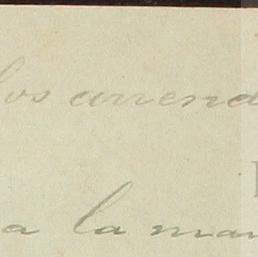 los arrend
a la man